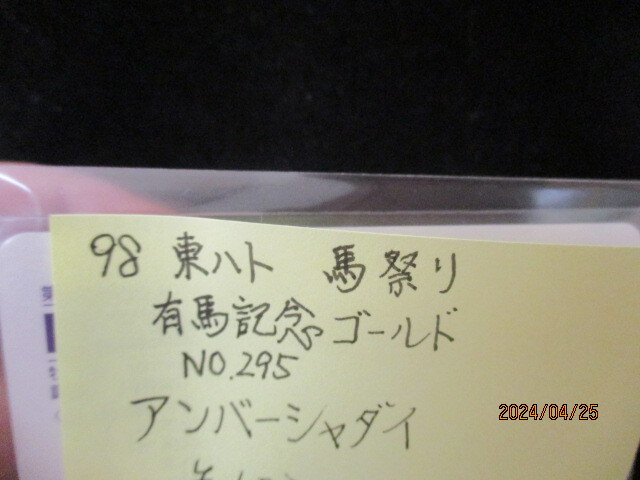 98 東ハト 馬祭り
有馬記念ゴールド
NO.295
アンバーシャダイ
2024/04/25